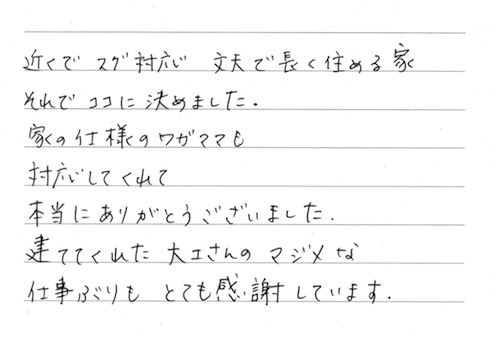 近くで スグ対応 丈夫で長く住める家
それで ココに決めました.
家の仕様のワガママも
対応してくれて
本当にありがとうございました.
建ててくれた 大工さんの マジメな
仕事ぶりも とても感謝しています.